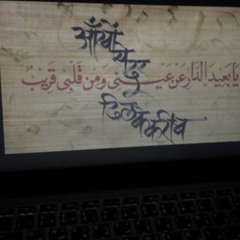 आँखों से दूर
يَا بَعِيدَ الدَّارِ عَنْ عَيْنِي وَمِنْ قَلْبِي قَرِيبٌ
दिल के करीब